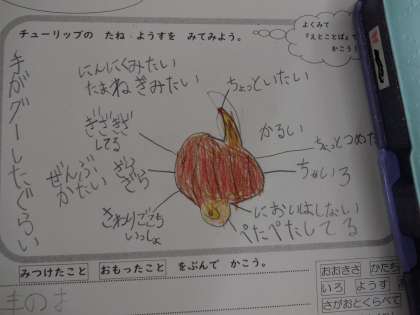 チューリップの たね ようすを みてみよう。
よくみて
「えとことば」で
かこう！
手がグーしたぐらい
にんにくみたい
たまねぎみたい
ちょっといたい
ぎざぎざ
してる
かるい
ちょっとつめた
ぜんぶ
かたい
ざら
ざら
ちゃいろ
さわりごこち
いっしょ
においはしない
ぺたぺたしてる
みつけたこと おもったこと をぶんで かこう。
おおきさ かたち
いろ ようす
さがおとくらべて